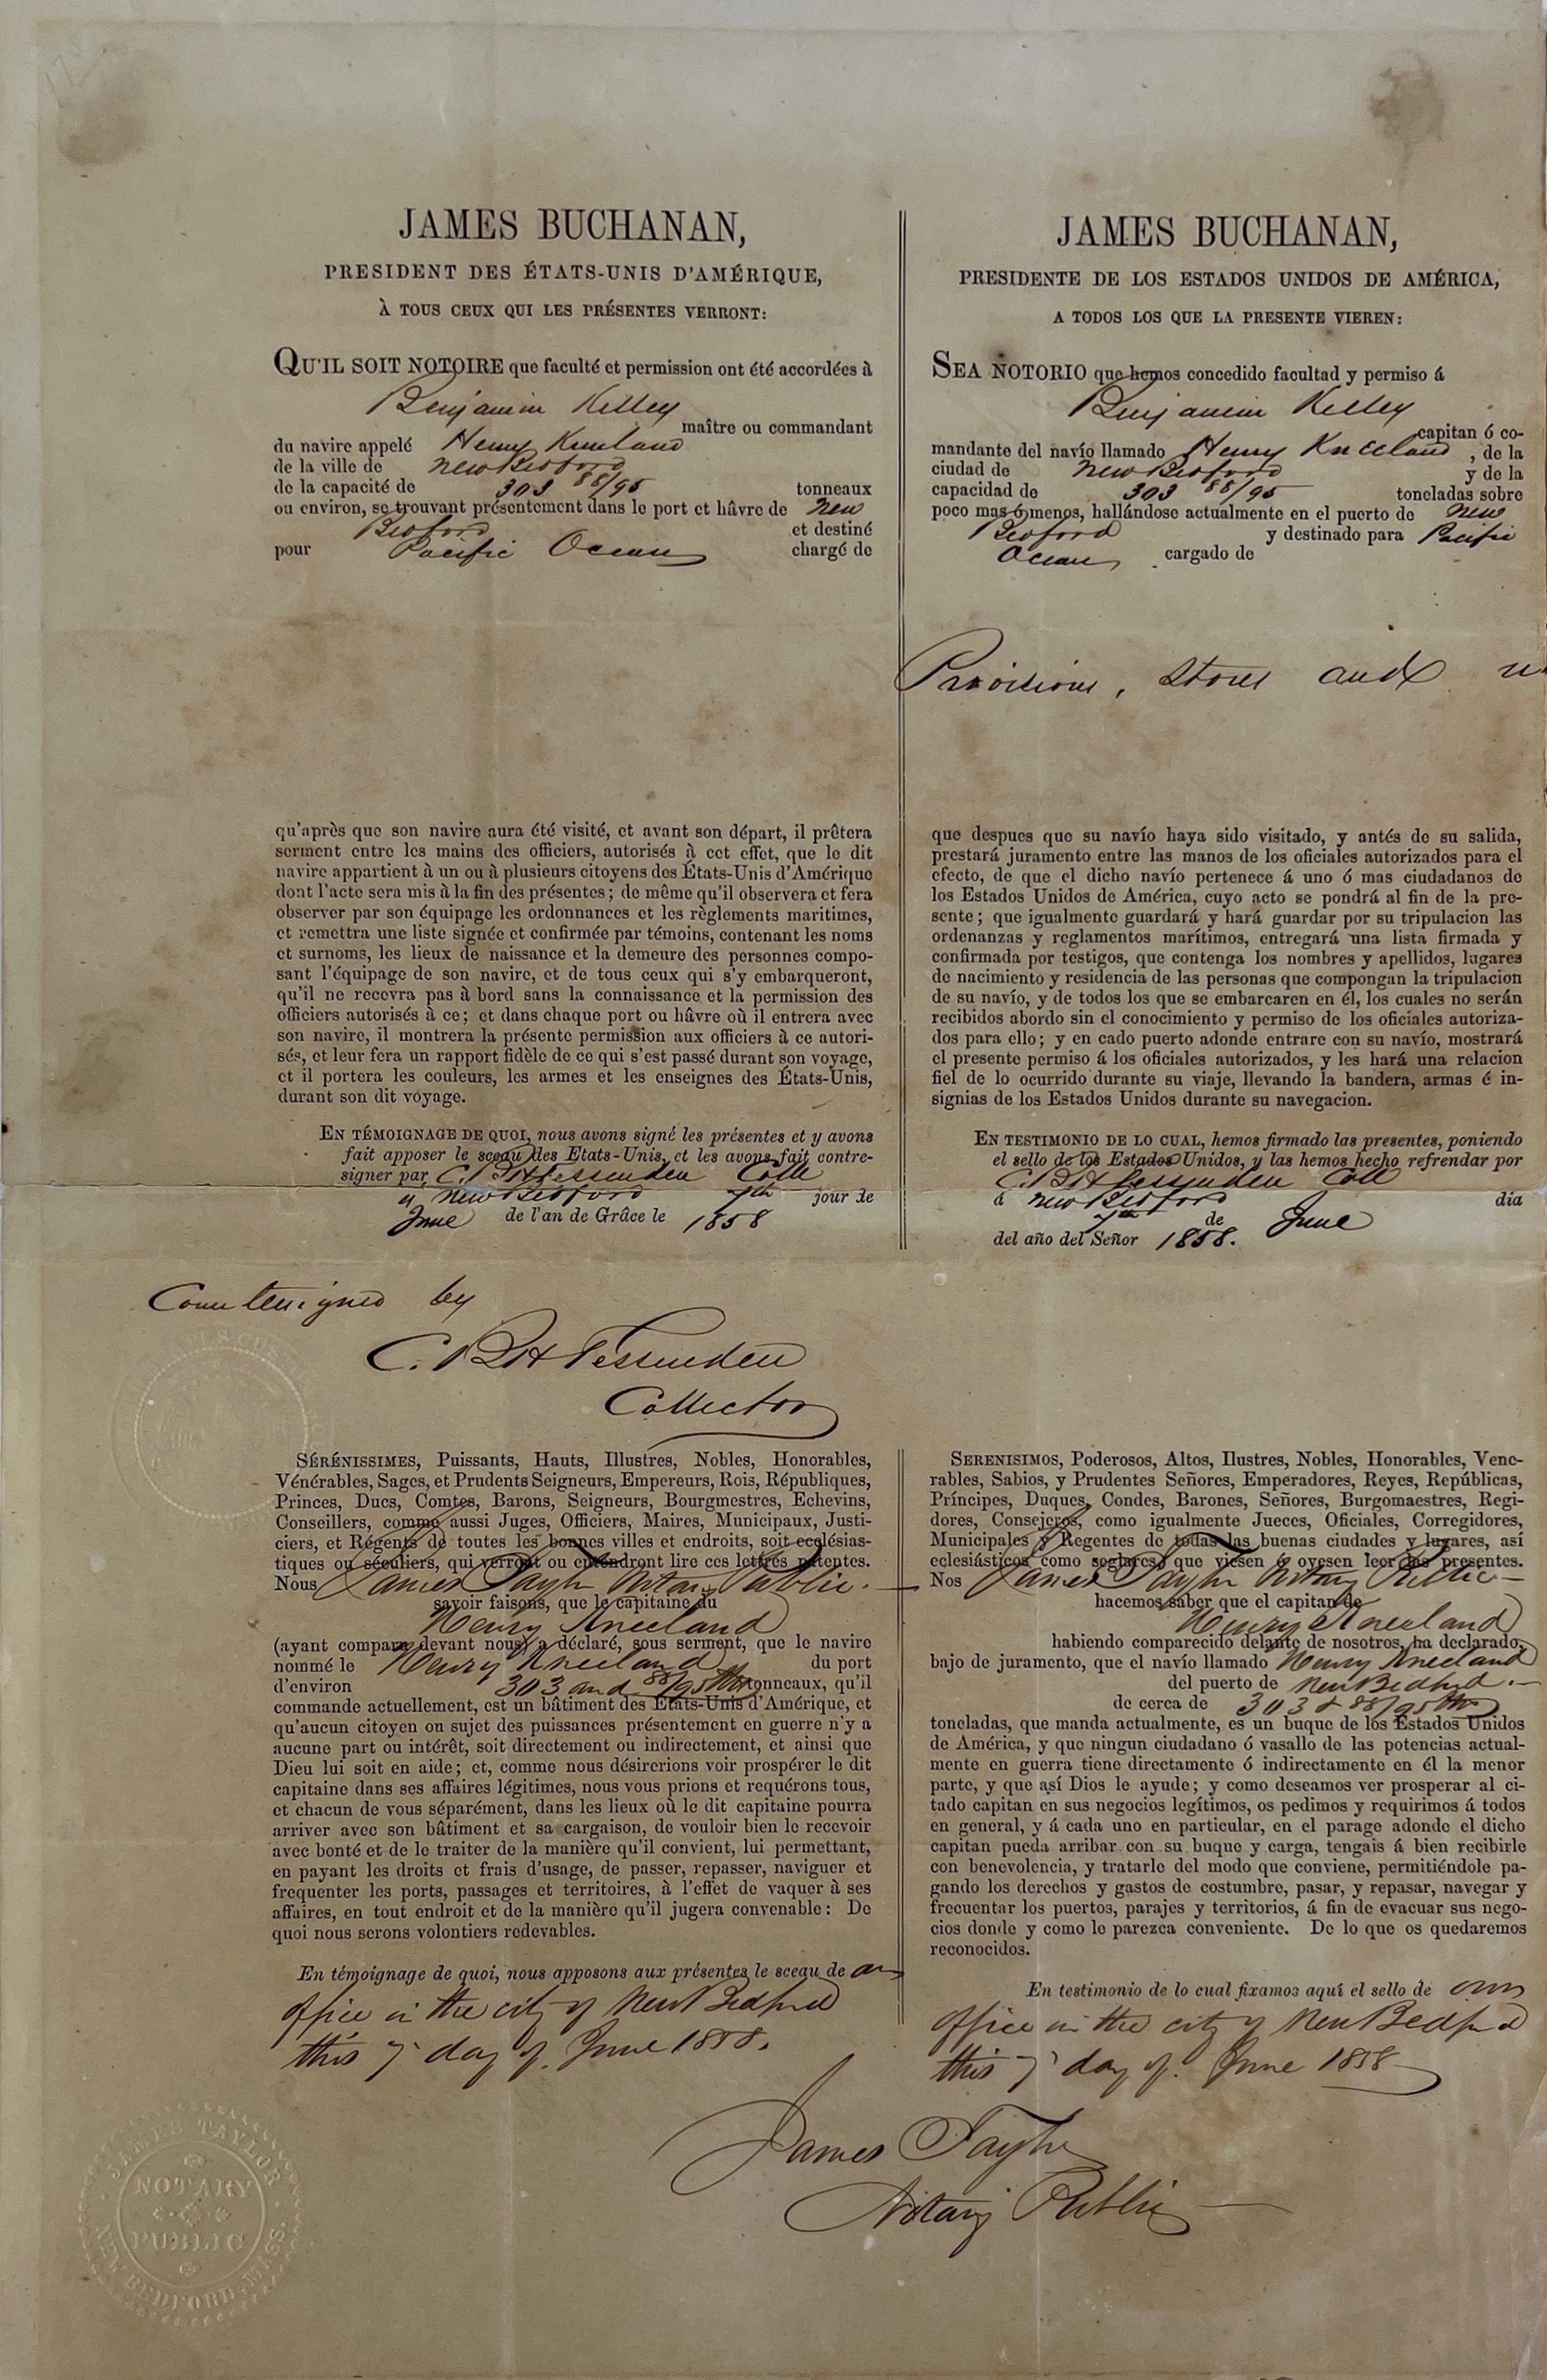 JAMES BUCHANAN,
PRESIDENT DES ÉTATS-UNIS D'AMÉRIQUE,
À TOUS CEUX QUI LES PRÉSENTES VERRONT:
QU'IL SOIT NOTOIRE que faculté et permission ont été accordées à
Benjamin Kelley
maître ou commandant
du navire appelé Henry Kneeland
de la ville de New Bedford
de la capacité de 303 88/95 tonneaux
ou environ, se trouvant présentement dans le port et hâvre de New
Bedford et destiné
pour Pacific Ocean chargé de
qu'après que son navire aura été visité, et avant son départ, il prêtera
serment entre les mains des officiers, autorisés à cet effet, que le dit
navire appartient à un ou à plusieurs citoyens des États-Unis d'Amérique
dont l'acte sera mis à la fin des présentes; de même qu'il observera et fera
observer par son équipage les ordonnances et les règlements maritimes,
et remettra une liste signée et confirmée par témoins, contenant les noms
et surnoms, les lieux de naissance et la demeure des personnes compo-
sant l'équipage de son navire, et de tous ceux qui s'y embarqueront,
qu'il ne recevra pas à bord sans la connaissance et la permission des
officiers autorisés à ce; et dans chaque port ou hâvre où il entrera avec
son navire, il montrera la présente permission aux officiers à ce autori-
sés, et leur fera un rapport fidèle de ce qui s'est passé durant son voyage,
et il portera les couleurs, les armes et les enseignes des États-Unis,
durant son dit voyage.
EN TÉMOIGNAGE DE QUOI, nous avons signé les présentes et y avons
fait apposer le sceau des Etats-Unis, et les avons fait contre-
signer par C. B. H Fessenden Coll
à New Bedford 7th jour de
June de l'an de Grâce le 1858
JAMES BUCHANAN,
PRESIDENTE DE LOS ESTADOS UNIDOS DE AMÉRICA,
A TODOS LOS QUE LA PRESENTE VIEREN:
SEA NOTORIO que hemos concedido facultad y permiso á
Benjamin Kelley
capitan ó co-
mandante del navío llamado Henry Kneeland, de la
ciudad de New Bedford y de la
capacidad de 303 88/95 toneladas sobre
poco mas ó menos, hallándose actualmente en el puerto de New
Bedford y destinado para Pacific
Ocean cargado de
Provisions, Stores and
que despues que su navío haya sido visitado, y antés de su salida,
prestará juramento entre las manos de los oficiales autorizados para el
efecto, de que el dicho navío pertenece á uno ó mas ciudadanos de
los Estados Unidos de América, cuyo acto se pondrá al fin de la pre-
sente; que igualmente guardará y hará guardar por su tripulacion las
ordenanzas y reglamentos marítimos, entregará una lista firmada y
confirmada por testigos, que contenga los nombres y apellidos, lugares
de nacimiento y residencia de las personas que compongan la tripulacion
de su navío, y de todos los que se embarcaren en él, los cuales no serán
recibidos abordo sin el conocimiento y permiso de los oficiales autoriza-
dos para ello; y en cado puerto adonde entrare con su navío, mostrará
el presente permiso á los oficiales autorizados, y les hará una relacion
fiel de lo ocurrido durante su viaje, llevando la bandera, armas é in-
signias de los Estados Unidos durante su navegacion.
EN TESTIMONIO DE LO CUAL, hemos firmado las presentes, poniendo
el sello de los Estados Unidos, y las hemos hecho refrendar por
C. B H Fessenden Coll
á New Bedford dia
7th de June
del año del Señor 1858.
Countersigned by
C. B H Fessenden
Collector
SÉRÉNISSIMES, Puissants, Hauts, Illustres, Nobles, Honorables,
Vénérables, Sages, et Prudents Seigneurs, Empereurs, Rois, Républiques,
Princes, Ducs, Comtes, Barons, Seigneurs, Bourgmestres, Echevins,
Conseillers, comme aussi Juges, Officiers, Maires, Municipaux, Justi-
ciers, et Régents de toutes les bonnes villes et endroits, soit ecclésias-
tiques ou séculiers, qui verront ou entendront lire ces lettres patentes.
Nous James Taylor Notary Public.
savoir faisons, que le capitaine du
Henry Kneeland
(ayant comparu devant nous) a déclaré, sous serment, que le navire
nommé le Henry Kneeland du port
d'environ 303 and 88/95ths tonneaux, qu'il
commande actuellement, est un bâtiment des États-Unis d'Amérique, et
qu'aucun citoyen ou sujet des puissances présentement en guerre n'y a
aucune part ou intérêt, soit directement ou indirectement, et ainsi que
Dieu lui soit en aide; et, comme nous désirerions voir prospérer le dit
capitaine dans ses affaires légitimes, nous vous prions et requérons tous,
et chacun de vous séparément, dans les lieux où le dit capitaine pourra
arriver avec son bâtiment et sa cargaison, de vouloir bien le recevoir
avec bonté et de le traiter de la manière qu'il convient, lui permettant,
en payant les droits et frais d'usage, de passer, repasser, naviguer et
frequenter les ports, passages et territoires, à l'effet de vaquer à ses
affaires, en tout endroit et de la manière qu'il jugera convenable: De
quoi nous serons volontiers redevables.
En témoignage de quoi, nous apposons aux présentes le sceau de our
office in the city of New Bedford
this 7th day of June 1858.
SERENISIMOS, Poderosos, Altos, Ilustres, Nobles, Honorables, Vene-
rables, Sabios, y Prudentes Señores, Emperadores, Reyes, Repúblicas,
Príncipes, Duques, Condes, Barones, Señores, Burgomaestres, Regi-
dores, Consejeros, como igualmente Jueces, Oficiales, Corregidores,
Municipales y Regentes de todas las buenas ciudades y lugares, así
eclesiásticos como seglares, que viesen ú oyesen leer las presentes.
Nos James Taylor Notary Public
hacemos saber que el capitan de
Henry Kneeland
habiendo comparecido delante de nosotros, ha declarado,
bajo de juramento, que el navío llamado Henry Kneeland
del puerto de New Bedford.
de cerca de 303 & 88/95ths
toneladas, que manda actualmente, es un buque de los Estados Unidos
de América, y que ningun ciudadano ó vasallo de las potencias actual-
mente en guerra tiene directamente ó indirectamente en él la menor
parte, y que así Dios le ayude; y como deseamos ver prosperar al ci-
tado capitan en sus negocios legítimos, os pedimos y requirimos á todos
en general, y á cada uno en particular, en el parage adonde el dicho
capitan pueda arribar con su buque y carga, tengais á bien recibirle
con benevolencia, y tratarle del modo que conviene, permitiéndole pa-
gando los derechos y gastos de costumbre, pasar, y repasar, navegar y
frecuentar los puertos, parajes y territorios, á fin de evacuar sus nego-
cios donde y como le parezca conveniente. De lo que os quedaremos
reconocidos.
En testimonio de lo cual fixamos aquí el sello de our
office in the city of New Bedford
this 7th day of June 1858
James Taylor
Notary Public
JAMES TAYLOR
NOTARY
PUBLIC
NEW BEDFORD, MASS.